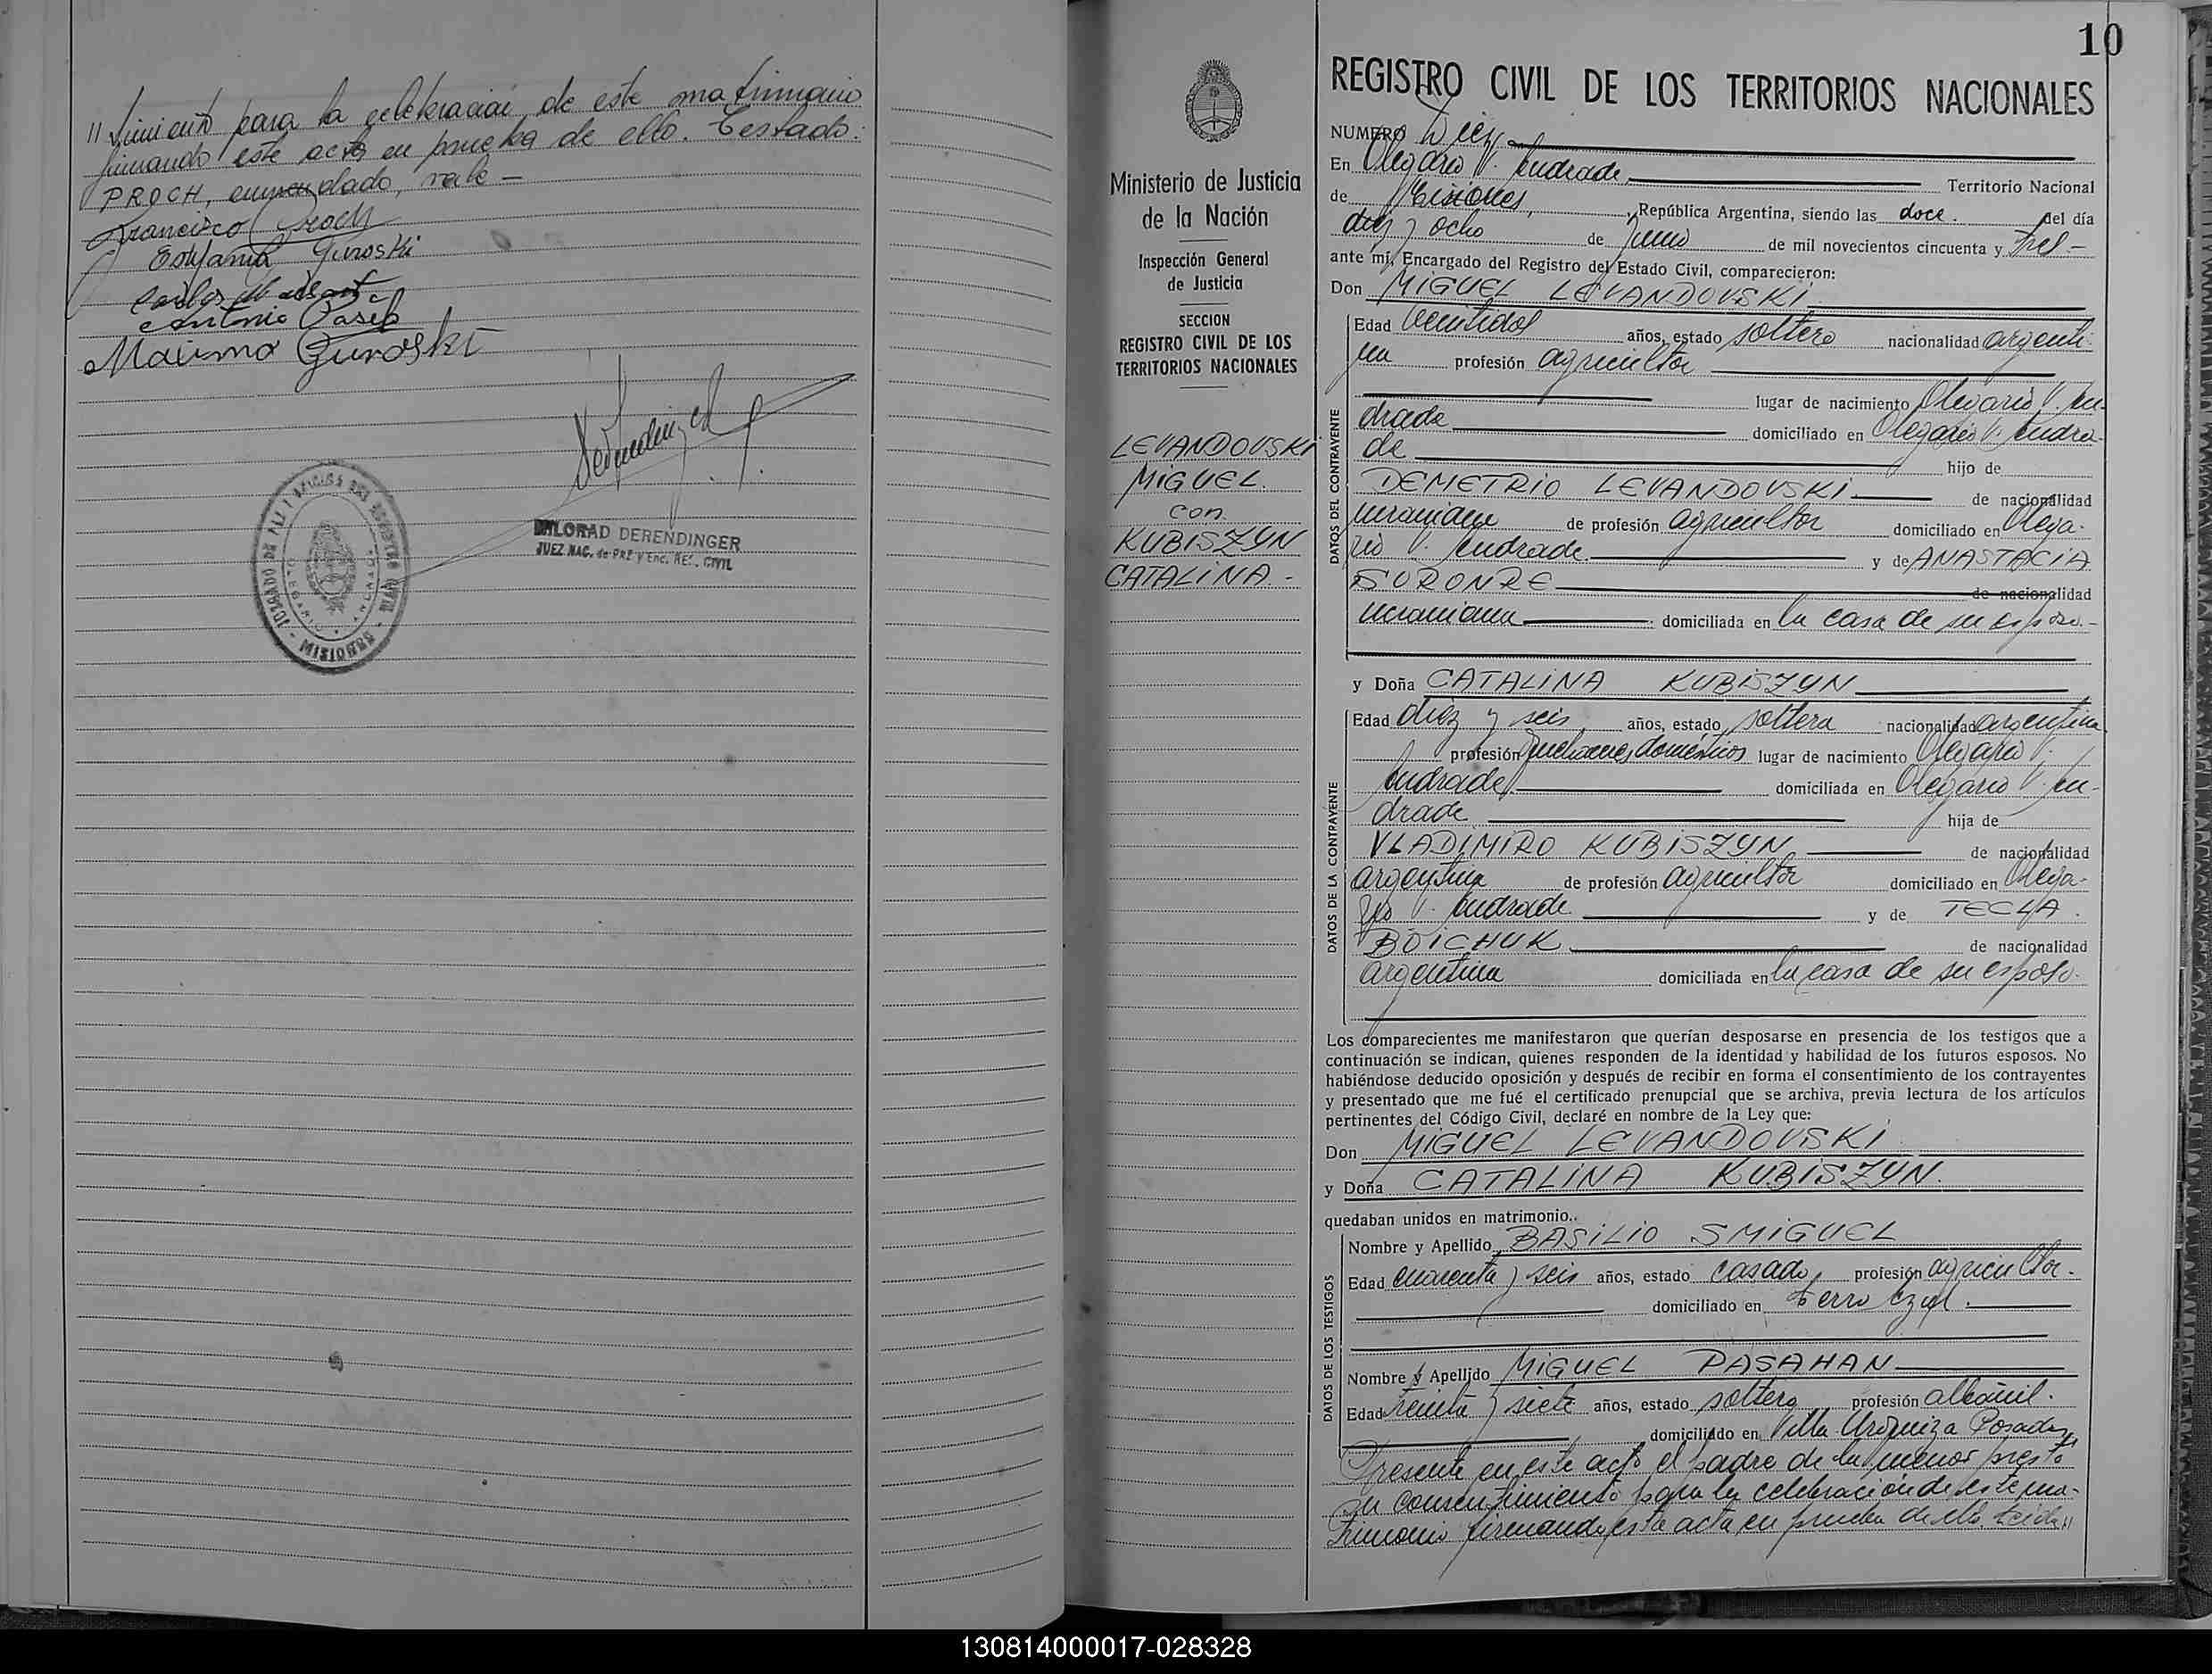 // timiento para la celebración de este matrimonio
firmando este acto en prueba de ello. Testado:
PROCH, enmendado, vale —
Francisco Proch
Estefania Guroski
Carlos
Antonio
Maximo Guroski
MILORAD DERENDINGER
JUEZ NAC. de PAZ y Enc. REG. CIVIL
MISIONES
10
Ministerio de Justicia
de la Nación
Inspección General
de Justicia
SECCION
REGISTRO CIVIL DE LOS
TERRITORIOS NACIONALES
LEVANDOVSKI
MIGUEL.
con
KUBISZYN
CATALINA.-
REGISTRO CIVIL DE LOS TERRITORIOS NACIONALES
NUMERO Diez
En Olegario V. Andrade, Territorio Nacional
de Misiones, República Argentina, siendo las doce. del día
diez y ocho de Junio de mil novecientos cincuenta y tres-
ante mí, Encargado del Registro del Estado Civil, comparecieron:
Don MIGUEL LEVANDOVSKI
DATOS DEL CONTRAYENTE
Edad Veintidos años, estado soltero nacionalidad argenti-
na profesión agricultor
lugar de nacimiento Olegario V. An-
drade domiciliado en Olegario V. Andra-
de hijo de
DEMETRIO LEVANDOVSKI de nacionalidad
ucraniana de profesión agricultor domiciliado en Olega-
rio V. Andrade y de ANASTACIA
de nacionalidad
ucraniana domiciliada en la casa de su esposo.-
y Doña CATALINA KUBISZYN
DATOS DE LA CONTRAYENTE
Edad diez y seis años, estado soltera nacionalidad argentina
profesión quehaceres domésticos lugar de nacimiento Olegario V.
Andrade domiciliada en Olegario V. An-
drade hija de
VLADIMIRO KUBISZYN de nacionalidad
argentina de profesión agricultor domiciliado en Olega-
rio V. Andrade y de TECLA.
BOICHUK de nacionalidad
argentina domiciliada en la casa de su esposo.
Los comparecientes me manifestaron que querían desposarse en presencia de los testigos que a
continuación se indican, quienes responden de la identidad y habilidad de los futuros esposos. No
habiéndose deducido oposición y después de recibir en forma el consentimiento de los contrayentes
y presentado que me fué el certificado prenupcial que se archiva, previa lectura de los artículos
pertinentes del Código Civil, declaré en nombre de la Ley que:
Don MIGUEL LEVANDOVSKI
y Doña CATALINA KUBISZYN.
quedaban unidos en matrimonio..
DATOS DE LOS TESTIGOS
Nombre y Apellido BASILIO SMIGUEL
Edad cuarenta y seis años, estado casado, profesión agricultor.
domiciliado en Cerro Azul.
Nombre y Apellido MIGUEL PASAHAN
Edad treinta y siete años, estado soltero profesión albañil.
domiciliado en Villa Urquiza Posadas
Presente en este acto el padre de la menor prestó
su consentimiento para la celebración de este ma-
trimonio firmando esta acta en prueba de ello. Leida //
130814000017-028328